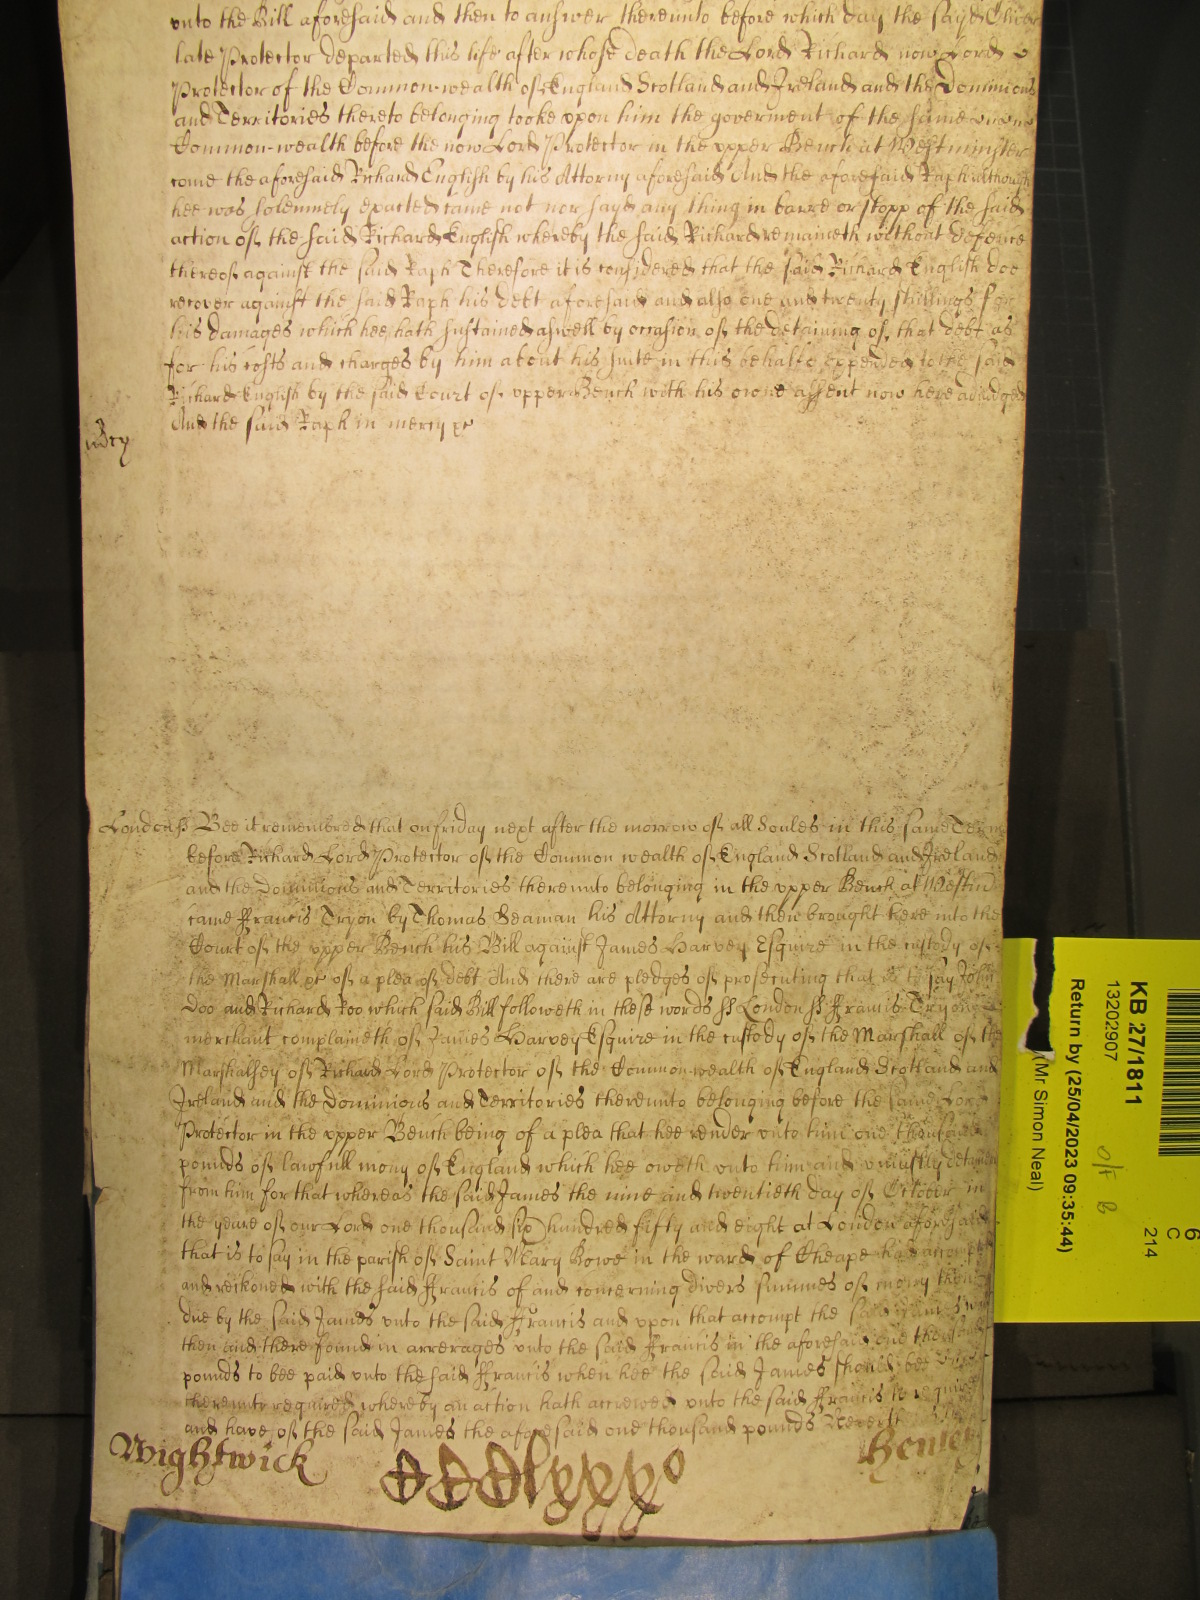 vnto the Bill aforesaid and then to answer therevnto before which day the sayd Oliver
late Protector departed this life after whose death the Lord Richard now Lord
Protector of the Common-wealth of England Scotland and Ireland and the Dominions
and Territories thereto belonging tooke vpon him the goverment of the same
Common-wealth before the now Lord Protector in the vpper Bench at Westminster
come the aforesaid Richard English by his Attorny aforesaid And the aforesaid Raph although
hee was solemnely exacted came not nor sayd any thing in barre or stopp of the said
action of the said Richard English whereby the said Richard remaineth without defence
thereof against the said Raph Therefore it is considered that the said Richard English doe
recover against the said Raph his debt aforesaid and also one and twenty shillings for
his damages which hee hath sustained aswell by occasion of the detaining of that debt as
for his costs and charges by him about his suite in this behalfe expended to the said
Richard English by the said Court of vpper Bench with his owne assent now here adiudged
And the said Raph in mercy
mcy
London ss Bee it remembred that on friday next after the morrow of all Soules in this same Terme
before Richard Lord Protector of the Common wealth of England Scotland and Ireland
and the Dominions and Territories therevnto belonging in the vpper Bench at Westm
came Francis Tryon by Thomas Seaman his Attorny and then brought here into the
Court of the vpper Bench his Bill against James Harvey Esquire in the custody of
the Marshall of a plea of debt And there are pledges of prosecuting that is to say John
Doo and Richard Roo which said Bill followeth in these words ss London ss Francis Tryon
merchant complaineth of James Harvey Esquire in the custody of the Marshall of the
Marshalsey of Richard Lord Protector of the Common-wealth of England Scotland and
Ireland and the Dominions and Territories therevnto belonging before the same Lord
Protector in the vpper Bench being of a plea that hee render vnto him one thousand
pounds of lawfull mony of England which hee oweth vnto him and vniustly detaineth
from him for that whereas the said James the nine and twentieth day of October in
the yeare of our Lord one thousand six hundred fifty and eight at London aforesaid
that is to say in the parish of Saint Mary Bowe in the ward of Cheape had accompted
and reckoned with the said Francis of and concerning divers summes of mony then
due by the said James vnto the said Francis and vpon that accompt the said James was
then and there found in arrerages vnto the said Francis in the aforesaid one thousand
pounds to bee paid vnto the said Francis when hee the said James should bee
therevnto required whereby an action hath accrewed vnto the said Francis to require
and have of the said James the aforesaid one thousand pounds Neverth
Wightwick
Henley
KB 27/1811
13202907
Return by (25/04/2023 09:35:44)
(Mr Simon Neal)
6
C
214